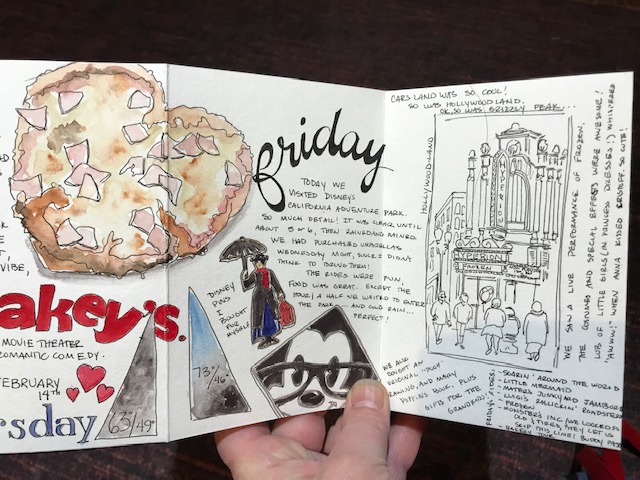 VIBE,
akey's.
MOVIE THEATER
ROMANTIC COMEDY.
FEBRUARY
14TH
rsday
63°/49°
friday
TODAY WE
VISITED DISNEY'S
CALIFORNIA ADVENTURE PARK.
SO MUCH DETAIL! IT WAS CLEAR UNTIL
ABOUT 5 or 6, THEN RAINED AND RAINED.
WE HAD PURCHASED UMBRELLAS
WEDNESDAY NIGHT, SINCE I DIDN'T
THINK TO BRING THEM!
THE RIDES WERE FUN,
FOOD WAS GREAT. EXCEPT THE
HOUR & A HALF WE WAITED TO ENTER
THE PARK - AND COLD RAIN...
PERFECT!
DISNEY
PINS
I
BOUGHT
FOR
MYSELF
73°/46°
WE ALSO
BOUGHT AN
ORIGINAL "POP"
DRAWING, AND MARY
POPPINS BOOK. PLUS
GIFTS FOR THE
GRANDKIDS!
CARS LAND WAS SO COOL!
SO WAS HOLLYWOODLAND.
OK, SO WAS GRIZZLY PEAK...
HOLLYWOODLAND
HYPERION
HYPERION
FROZEN
WE SAW A LIVE PERFORMANCE OF FROZEN.
THE COSTUMES AND SPECIAL EFFECTS WERE AWESOME!
LOTS OF LITTLE GIRLS (IN PRINCESS DRESSES!) WHISPERED
"AWWW!" WHEN ANNA KISSED KRISTOFF. SO CUTE!
RIDES:
- SOARIN' AROUND THE WORLD
- LITTLE MERMAID
- MATERS JUNKYARD JAMBOREE
- LUIGI'S ROLLICKIN' ROADSTERS
- MONSTER'S INC (WE LOOKED SO
OLD & TIRED, THEY LET US
SKIP THIS LINE! BUDDY PASS
- BAKERY TOUR